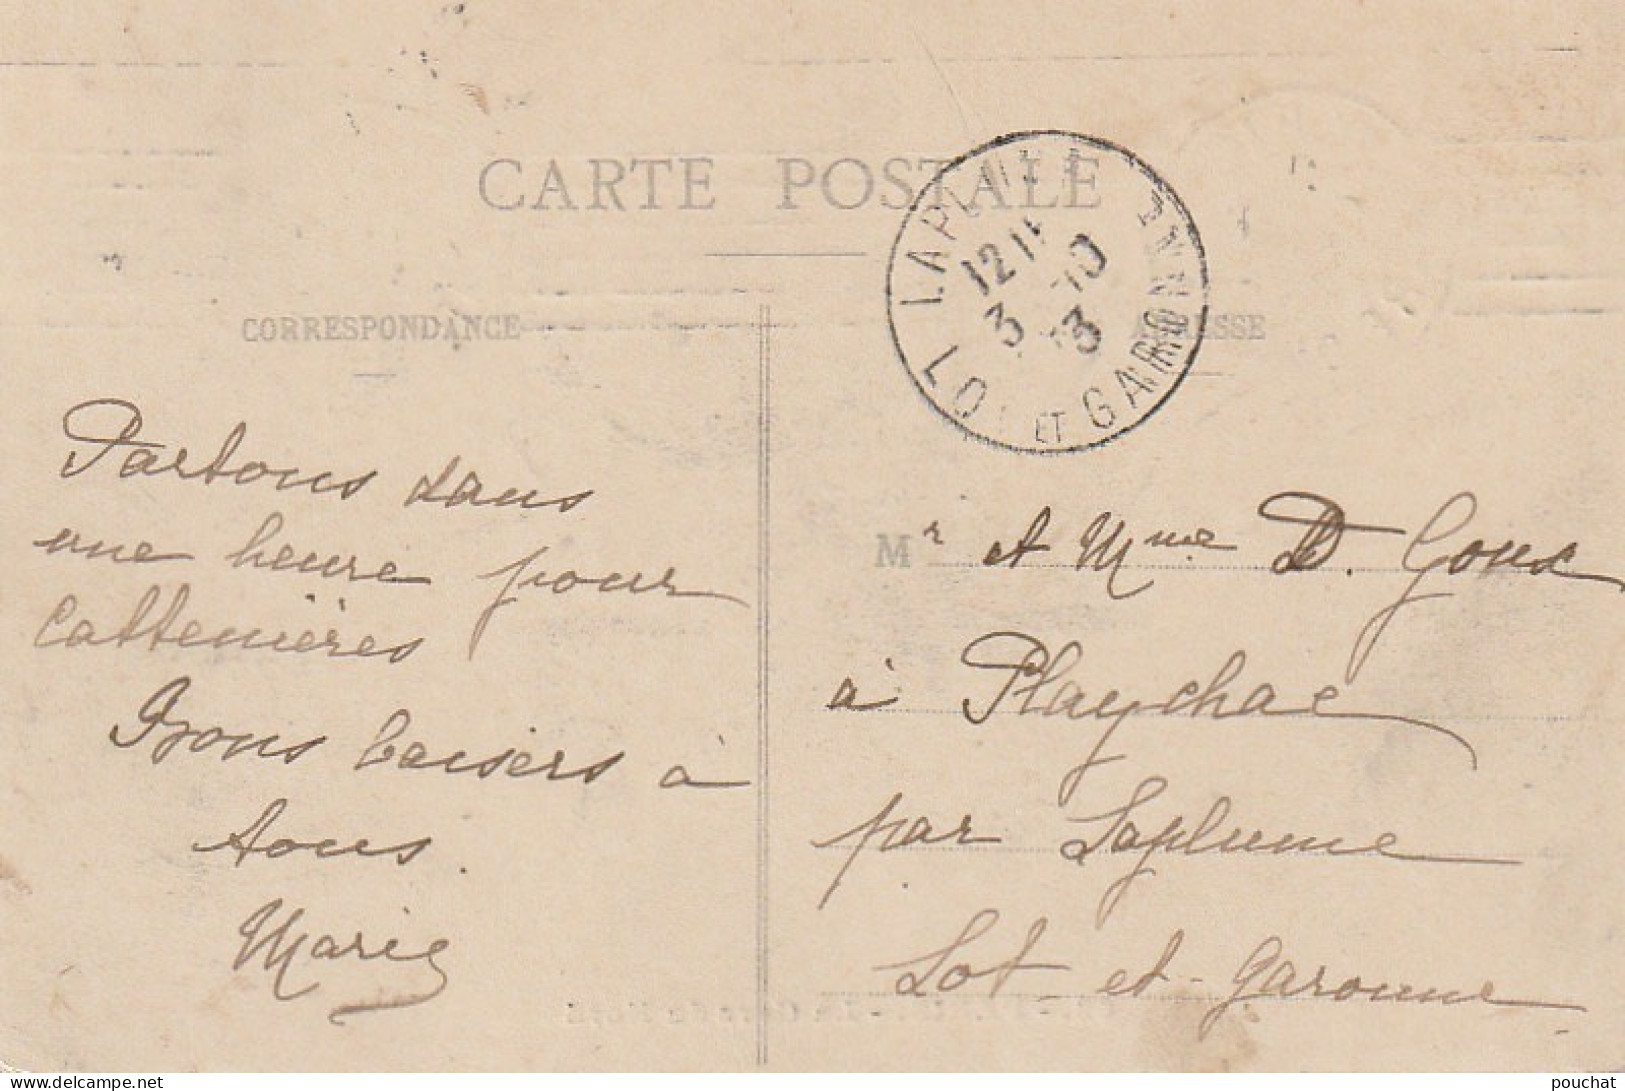 CARTE POSTALE
CORRESPONDANCE
ADRESSE
LAPLUME
12 15
3 -10
13
LOT ET GARONNE
Partons dans
une heure pour
Cattenières
Bons baisers à
tous.
Marie
Mr et Mme D. Goux
à Playchac
par Laplume
Lot-et-Garonne
www.delcampe.net
pouchat